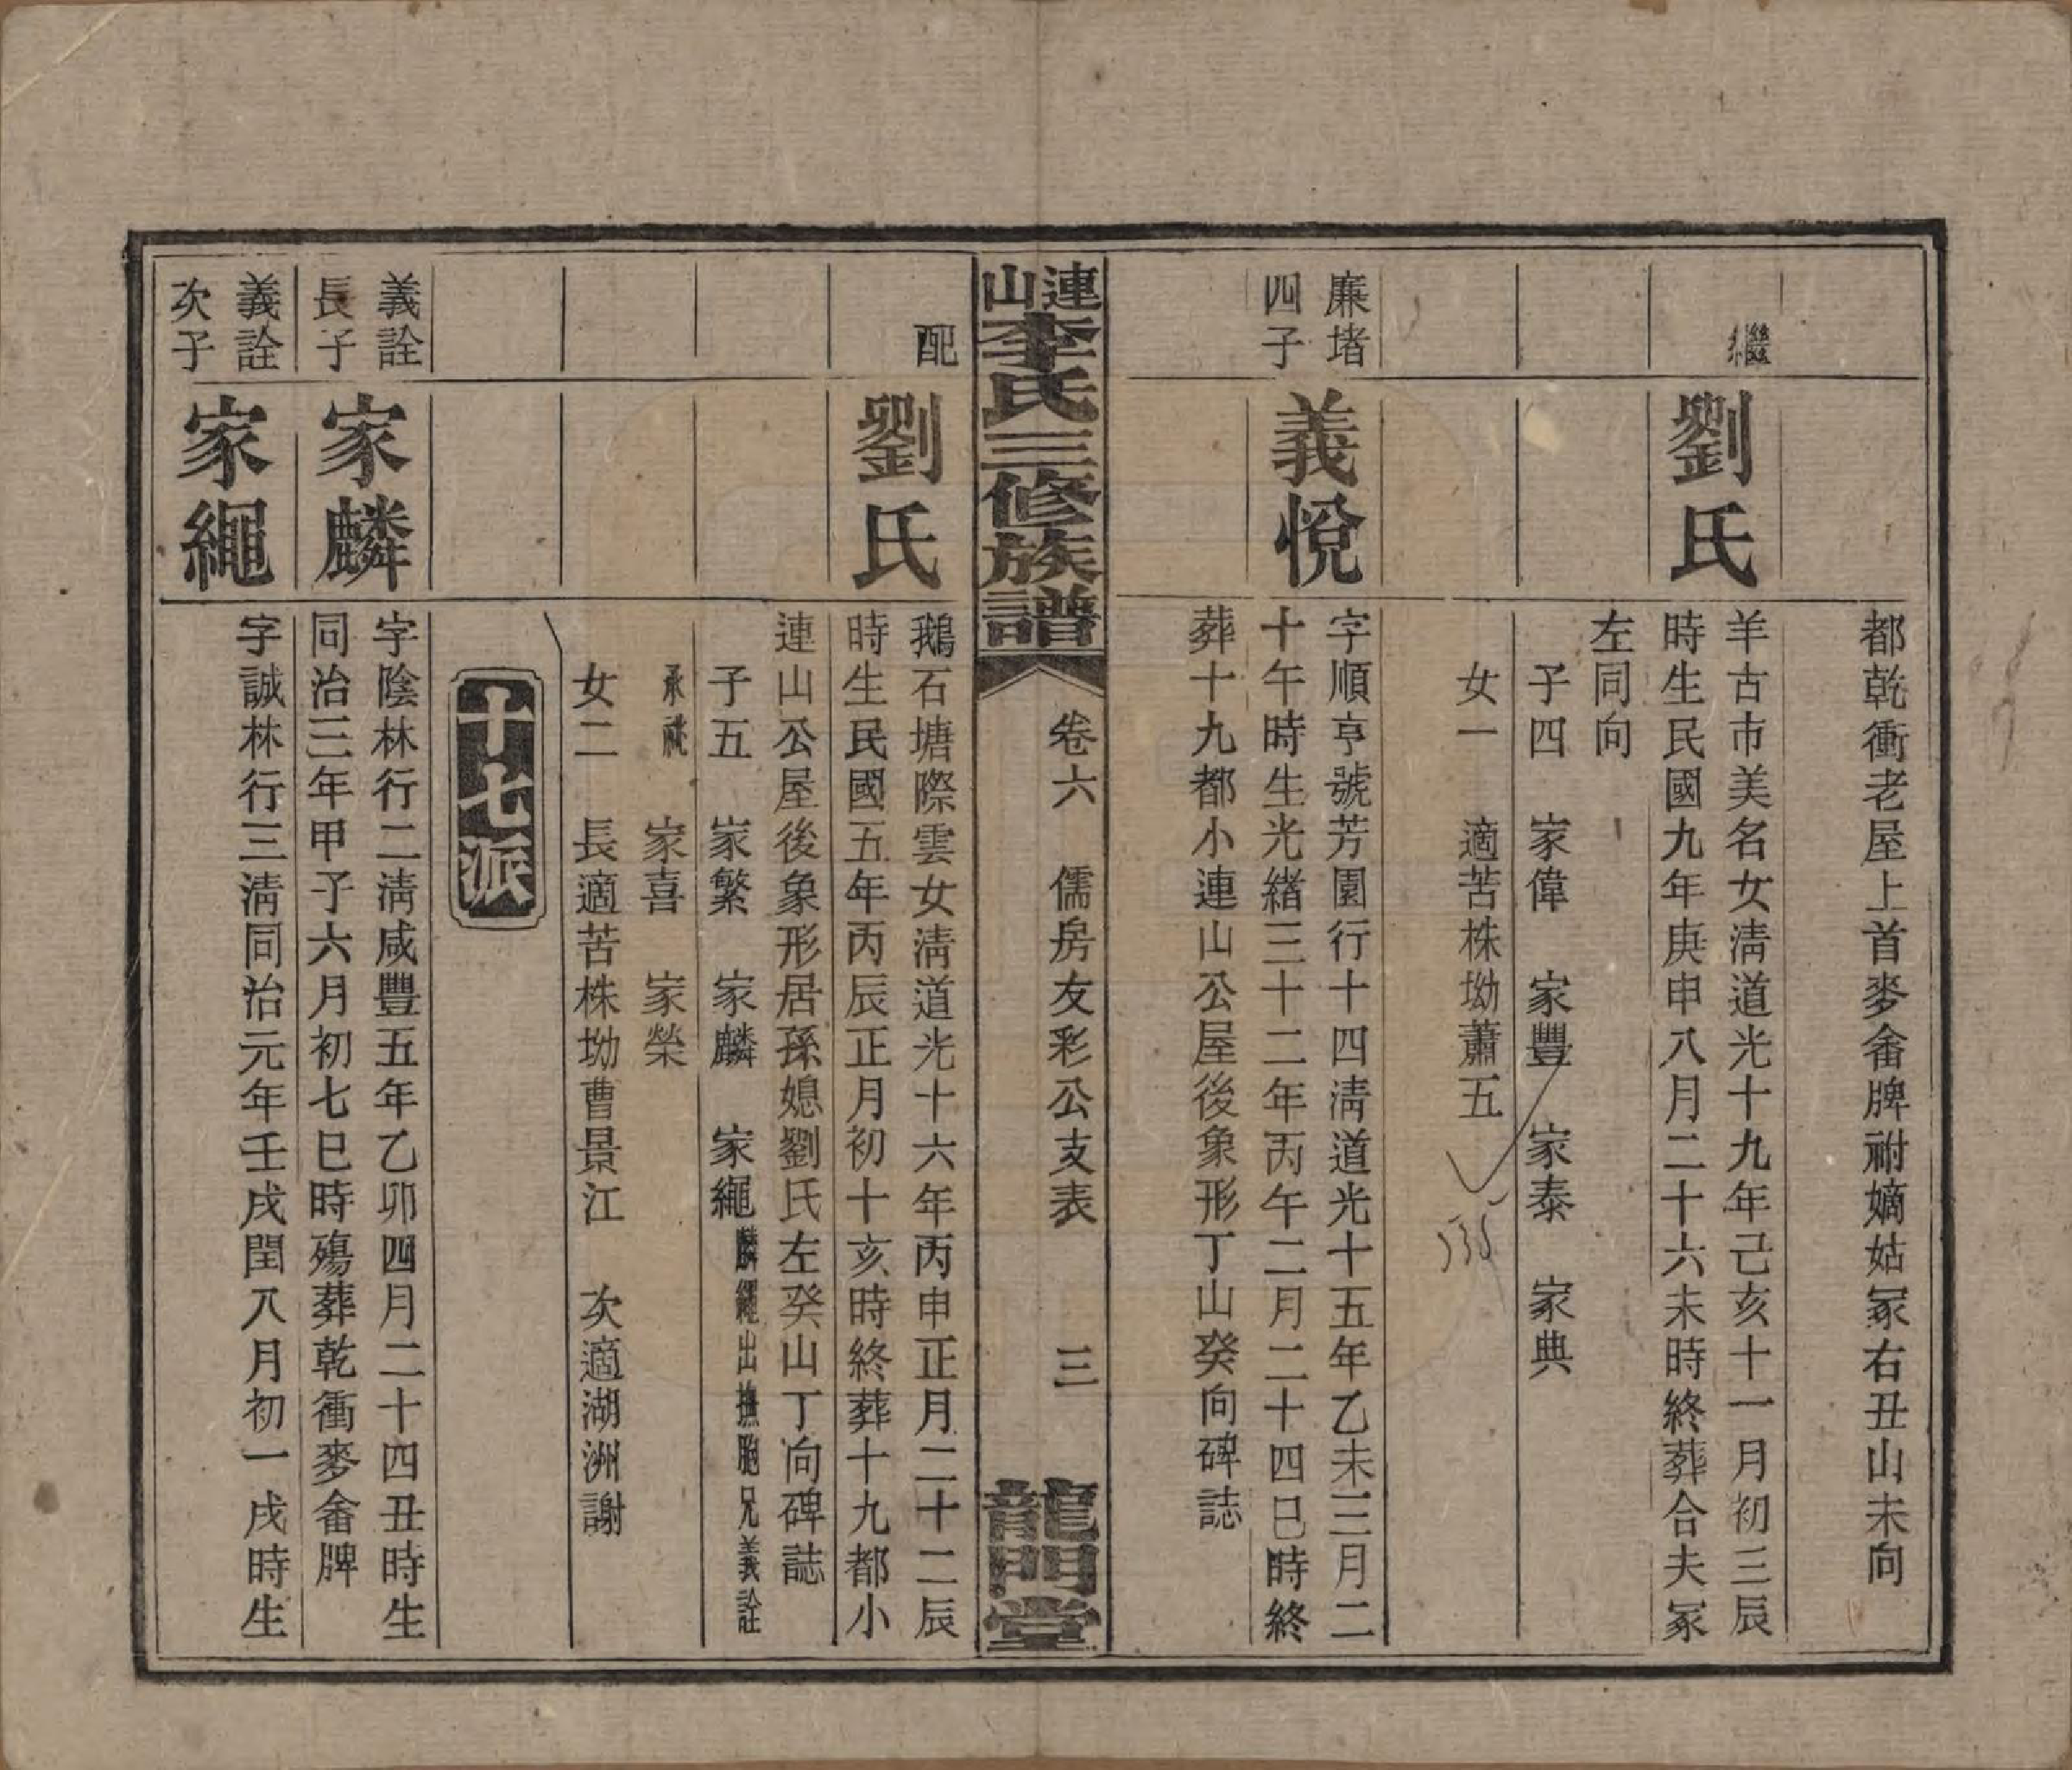 都乾衝老屋上首麥畬牌祔嫡姑冢右丑山未向
繼
劉氏
羊古市美名女淸道光十九年己亥十一月初三辰
時生民國九年庚申八月二十六未時終葬合夫冢
左同向
子四　家偉　家豐　家泰　家典
女一　適苦株坳蕭五
廉堵
四子
義悅
字順亨號芳園行十四淸道光十五年乙未三月二
十午時生光緖三十二年丙午二月二十四巳時終
葬十九都小連山公屋後象形丁山癸向碑誌
連山李氏三修族譜
卷六　儒房友彩公支表　三
龍門堂
配
劉氏
鵝石塘際雲女淸道光十六年丙申正月二十二辰
時生民國五年丙辰正月初十亥時終葬十九都小
連山公屋後象形居孫媳劉氏左癸山丁向碑誌
子五　家繁　家麟　家繩麟繩出撫胞兄義詮
承祧　家喜　家榮
女二　長適苦株坳曹景江　次適湖洲謝
十七派
義詮
長子
家麟
字陰林行二淸咸豐五年乙卯四月二十四丑時生
同治三年甲子六月初七巳時殤葬乾衝麥畬牌
義詮
次子
家繩
字誠林行三淸同治元年壬戌閏八月初一戌時生